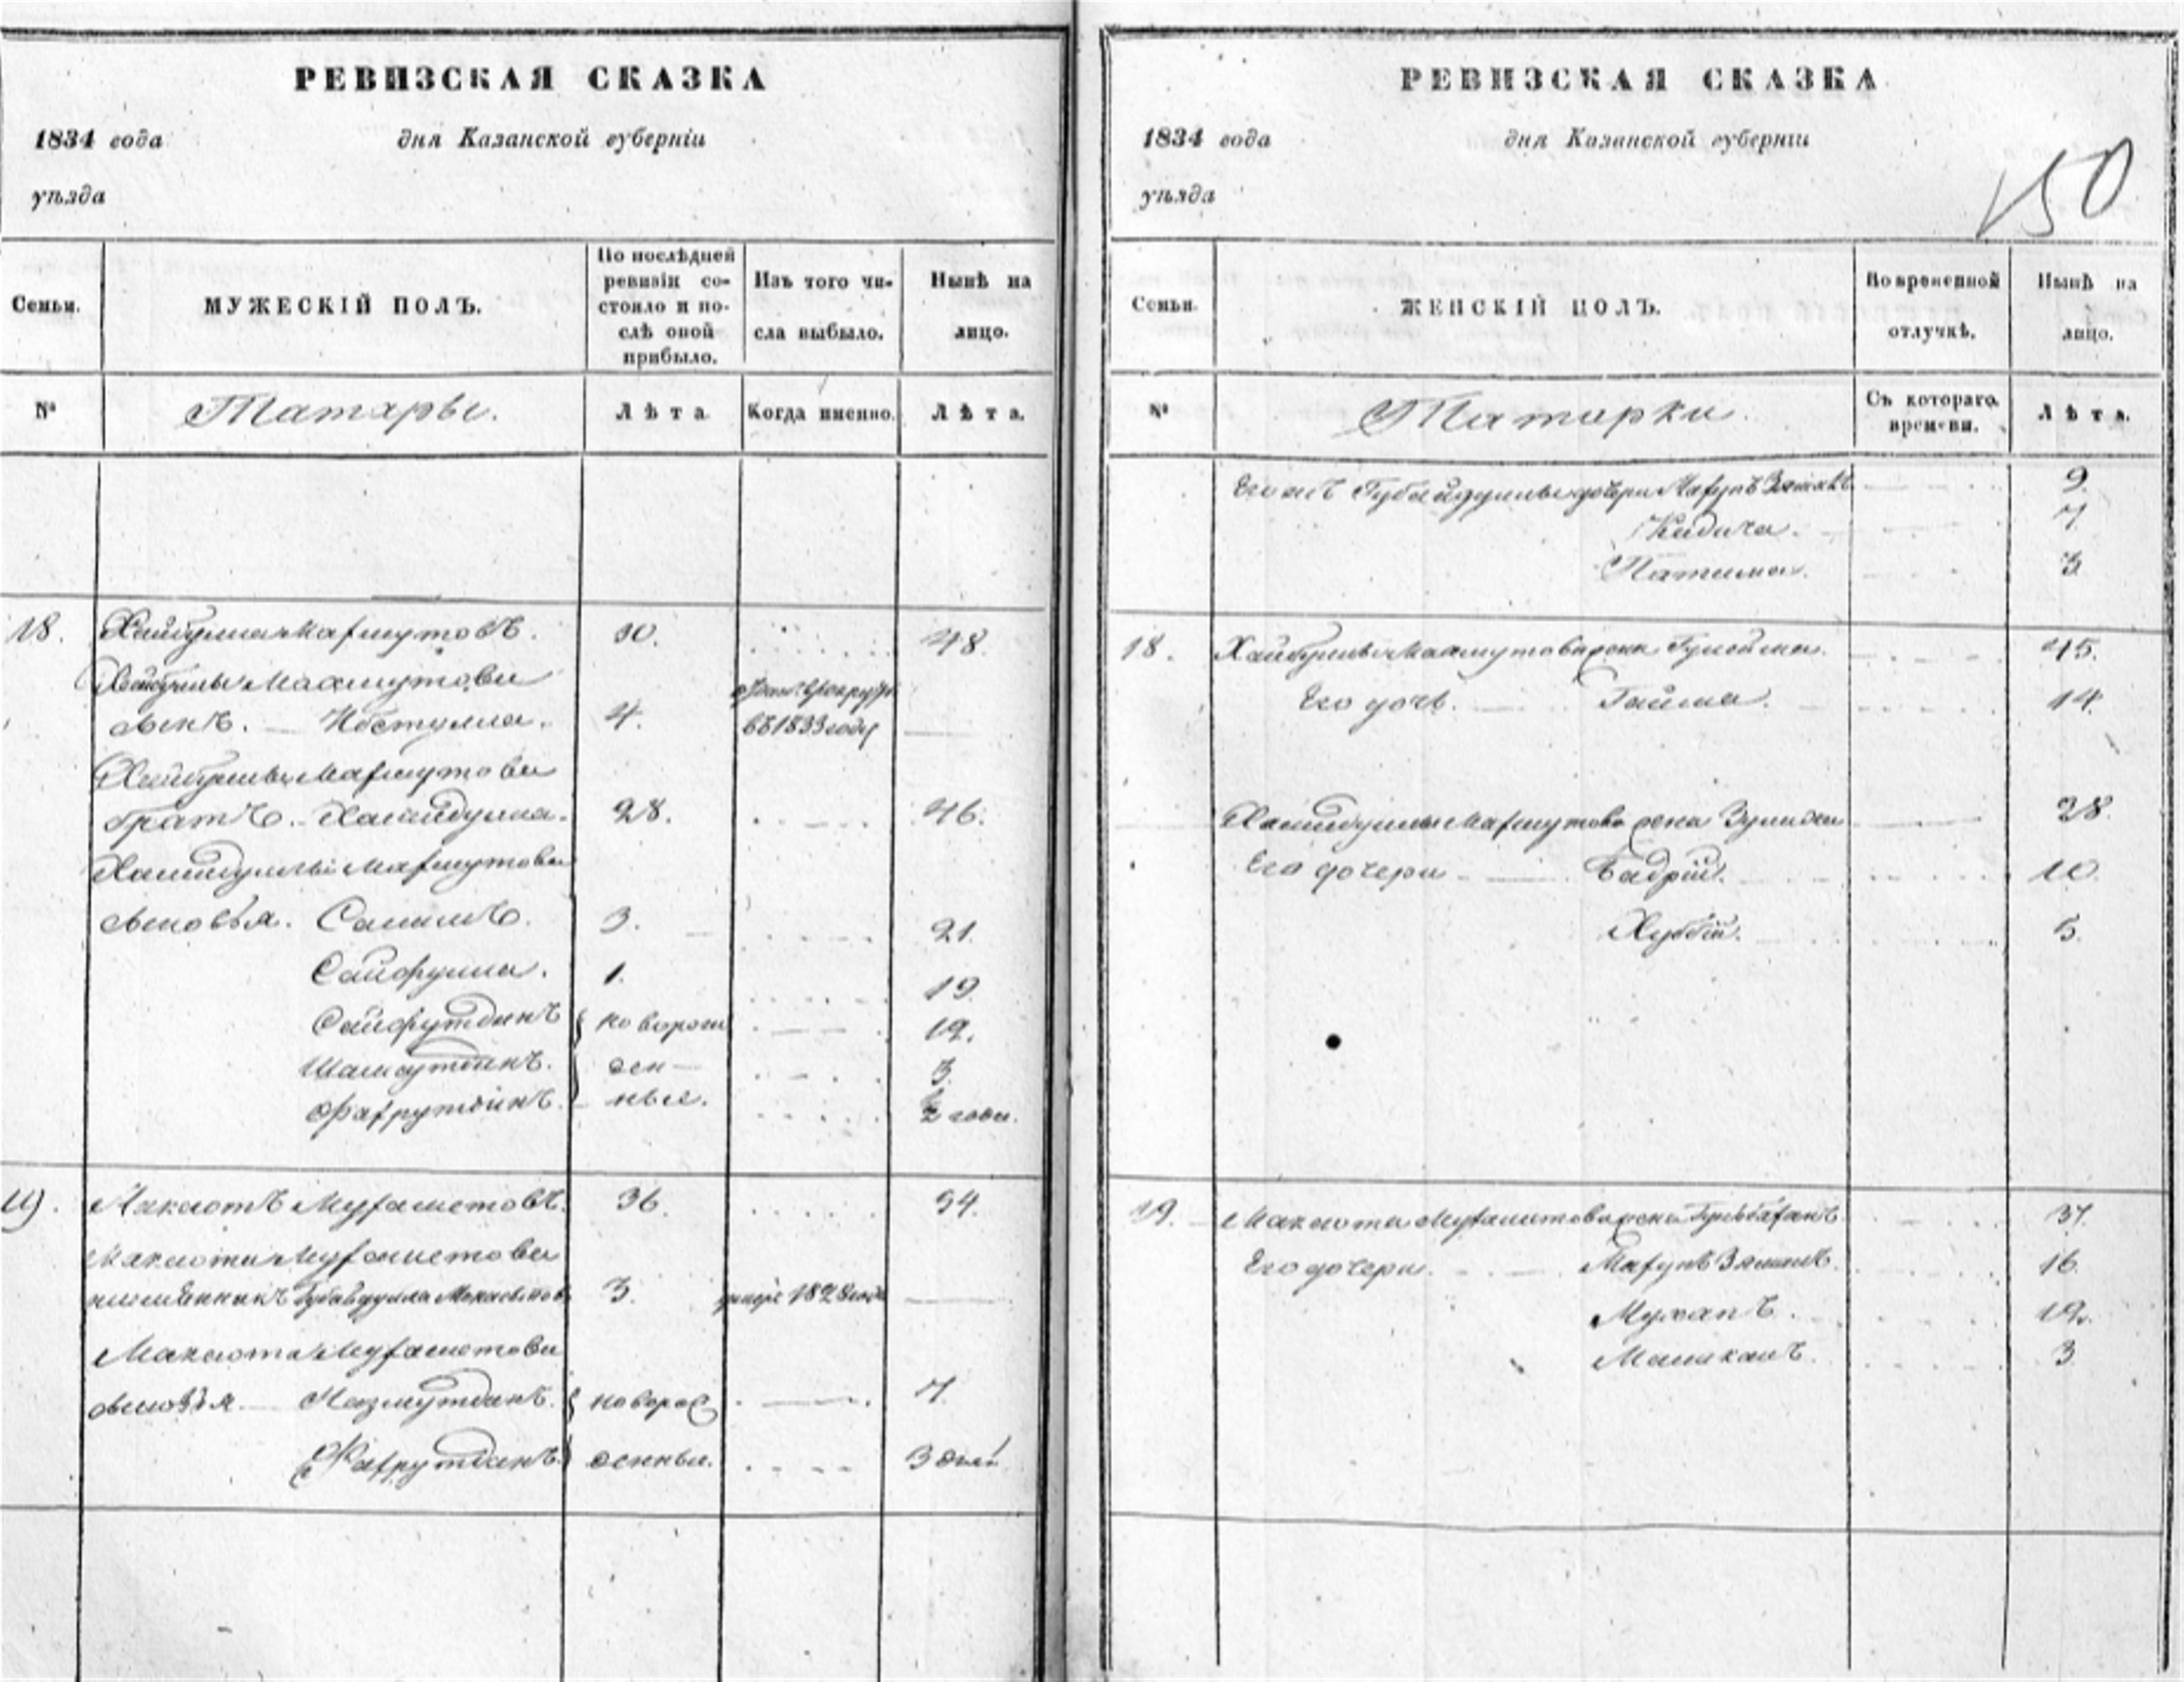 РЕВИЗСКАЯ СКАЗКА
1834 года дня Казанской губерніи
уѣзда
Семьи.
МУЖЕСКІЙ ПОЛЪ.
По послѣдней
ревизіи со-
стояло и по-
слѣ оной
прибыло.
Изъ того чи-
сла выбыло.
Нынѣ на
лицо.
№
Татары.
Лѣта
Когда именно.
Лѣта.
18. Хайбулла Махмутовъ. 30. 48.
Хайбуллы Махмутова
сынъ. 4. въ 1833 году
Хайбуллы Махмутова
братъ. Хамидулла. 28. 46.
Хамидуллы Махмутова
сыновья. Салимъ. 3. 21.
Сайфулла. 1. 19.
Сайфутдинъ новорож 12.
Шамсутдинъ. ден 3.
Фахрутдинъ. ные. ½ года.
19. Максютъ Мухаметовъ. 36. 54.
Максюта Мухаметова
племянникъ Губайдулла 3. умеръ 1828 года
Максюта Мухаметова
сыновья Назмутдинъ. новорож 7.
Фахрутдинъ денные. 3 дней
РЕВИЗСКАЯ СКАЗКА
1834 года дня Казанской губерніи
уѣзда
150
Семьи.
ЖЕНСКІЙ ПОЛЪ.
Во временной
отлучкѣ.
Нынѣ на
лицо.
№
Татарки.
Съ котораго
времени.
Лѣта.
Губайдуллы дочери 9.
7
Патима. 3
18. Хайбуллы Махмутова жена 45.
Его дочь. 14.
Хамидуллы Махмутова жена 28.
Его дочери Бадрій. 10.
Хуббій. 5.
19. Максюта Мухаметова жена 37.
Его дочери. 16.
12.
3.